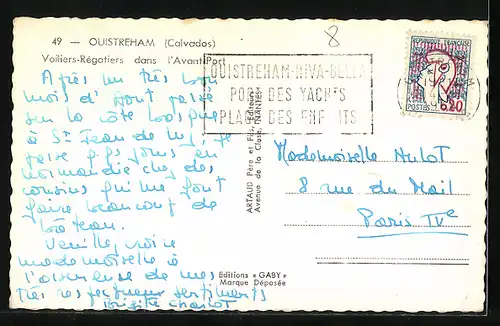 49 — OUISTREHAM (Calvados)
Voiliers-Régatiers dans l'Avant-Port
8
OUISTREHAM-RIVA-BELLA
PORT DES YACHTS
PLAGE DES ENF ITS
REPUBLIQUE FRANCAISE
0,20
POSTES
Après un très bon
mois d'Août passé
sur la côte basque
à St Jean de Luz, je
passe qqs jours en
Normandie chez des
cousins qui me font
faire beaucoup de
bateau.
Veuillez croire
mademoiselle à
l'assurance de mes
très respectueux sentiments
Brigitte Charlot
ARTAUD Père et Fils, Editeurs
Avenue de la Close, NANTES
Editions « GABY »
Marque Déposée
Mademoiselle Hulot
8 rue du Mail
Paris IVe